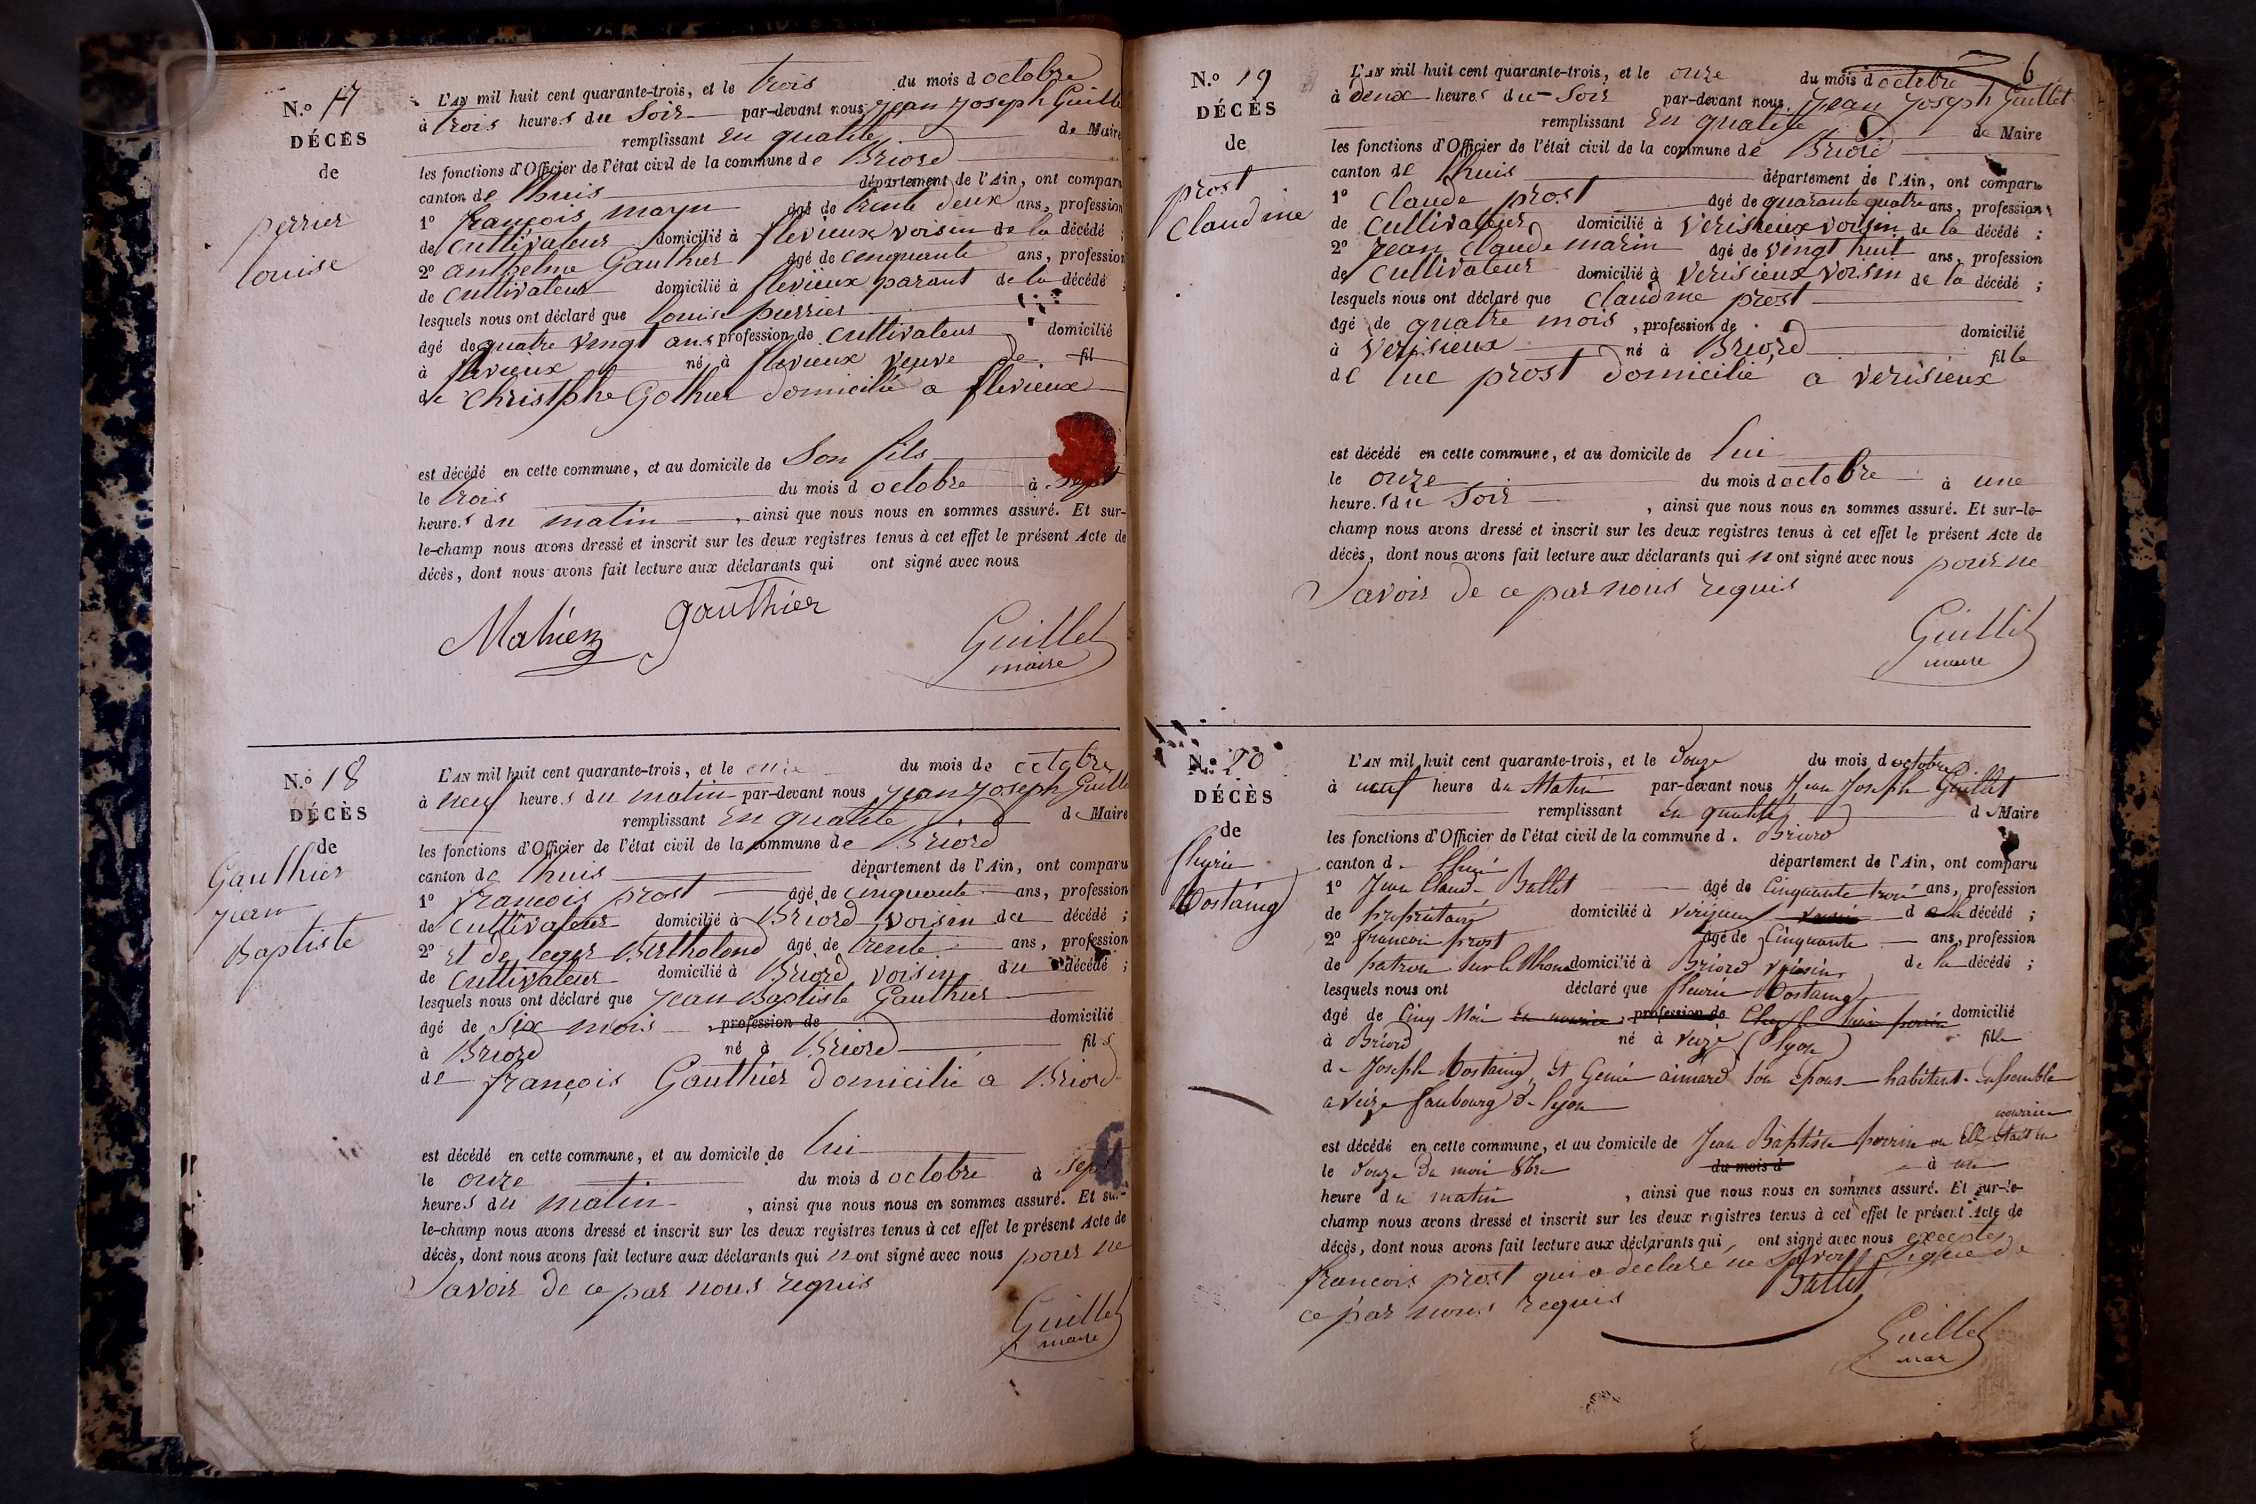 N.º 17
DÉCÈS
de
perrier
louise
L'AN mil huit cent quarante-trois, et le trois du mois d octobre
à trois heures du Soir par-devant nous Jean Joseph Guille
remplissant en qualité de Maire
les fonctions d'Officier de l'état civil de la commune de Briord
canton de lhuis département de l'Ain, ont comparu
1º françois mayn âgé de trente deux ans, profession
de cultivateur domicilié à flevieux voisin de la décédé ;
2º anthelme Gauthier âgé de cenquante ans, profession
de cultivateur domicilié à flevieux parant de la décédé ;
lesquels nous ont déclaré que louise perrier
âgé de quatre vingt ans profession de cultivateur domicilié
à flevieux né à flevieux veuve de fil
de Christphe Gothier domicilié a flevieux
est décédé en cette commune, et au domicile de Son fils
le trois du mois d octobre à Sept
heures du matin, ainsi que nous nous en sommes assuré. Et sur-
le-champ nous avons dressé et inscrit sur les deux registres tenus à cet effet le présent Acte de
décès, dont nous avons fait lecture aux déclarants qui ont signé avec nous
Mahien gauthier Guillet
maire
N.º 18
DÉCÈS
de
Gauthier
jean
Baptiste
L'AN mil huit cent quarante-trois, et le onze du mois de octobre
à neuf heures du matin par-devant nous Jean Joseph Guille
remplissant En qualité d Maire
les fonctions d'Officier de l'état civil de la commune de Briord
canton de lhuis département de l'Ain, ont comparu
1º francois prost âgé de cinquante ans, profession
de cultivateur domicilié à Briord voisin du décédé ;
2º et de leger Bertholond âgé de trente ans, profession
de cultivateur domicilié à Briord voisin du décédé ;
lesquels nous ont déclaré que jean Baptiste Gauthier
âgé de Six mois, profession de domicilié
à Briord né à Briord fils
de françois Gauthier domicilié a Briord
est décédé en cette commune, et au domicile de lui
le onze du mois d octobre à Sept
heures du matin, ainsi que nous nous en sommes assuré. Et sur-
le-champ nous avons dressé et inscrit sur les deux registres tenus à cet effet le présent Acte de
décès, dont nous avons fait lecture aux déclarants qui n ont signé avec nous pour ne
Savoir de ce par nous requis
Guillet
maire
6
N.º 19
DÉCÈS
de
prost
claudine
L'AN mil huit cent quarante-trois, et le onze du mois d octobre
à deux heures du Soir par-devant nous Jean Joseph Guillet
remplissant En qualité de Maire
les fonctions d'Officier de l'état civil de la commune de Briord
canton de lhuis département de l'Ain, ont comparu
1º claude prost âgé de quarante quatre ans, profession
de cultivateur domicilié à Verisieux voisin de la décédé ;
2º Jean claude marin âgé de vingt huit ans, profession
de cultivateur domicilié à Verisieux voisin de la décédé ;
lesquels nous ont déclaré que claudine prost
âgé de quatre mois, profession de domicilié
à Verisieux né à Briord fille
de luc prost domicilié a verisieux
est décédé en cette commune, et au domicile de lui
le onze du mois d octobre à une
heures du Soir, ainsi que nous nous en sommes assuré. Et sur-le-
champ nous avons dressé et inscrit sur les deux registres tenus à cet effet le présent Acte de
décès, dont nous avons fait lecture aux déclarants qui n ont signé avec nous pour ne
Savoir de ce par nous requis
Guillet
maire
N.º 20
DÉCÈS
de
Costaing
L'AN mil huit cent quarante-trois, et le douze du mois d octobre
à neuf heure du Matin par-devant nous Jean Joseph Guillet
remplissant en qualité d Maire
les fonctions d'Officier de l'état civil de la commune d. Briord
canton d. lhuis département de l'Ain, ont comparu
1º Jean Claud. Ballet âgé de Cinquante trois ans, profession
de propriétaire domicilié à Verizieu voisin d la décédé ;
2º francois prost âgé de Cinquante ans, profession
de patron sur le Rhone domicilié à Briord voisin de la décédé ;
lesquels nous ont déclaré que fleurie Costaing
âgé de Cinq Mois en nourrice, profession de domicilié
à Briord né à Veize (lyon) fille
d. Joseph Costaing et Genie aimard son épouse habitant Ensemble
a Veize faubourg d. lyon
nourrice
est décédé en cette commune, et au domicile de Jean Baptiste perrin ou Elle était en
le douze du mois 8bre du mois d à une
heure du matin, ainsi que nous nous en sommes assuré. Et sur-le-
champ nous avons dressé et inscrit sur les deux registres tenus à cet effet le présent Acte de
décès, dont nous avons fait lecture aux déclarants qui ont signé avec nous excepter
francois prost qui a déclaré ne Savoir Signé de
ce par nous requis Ballet
Guillet